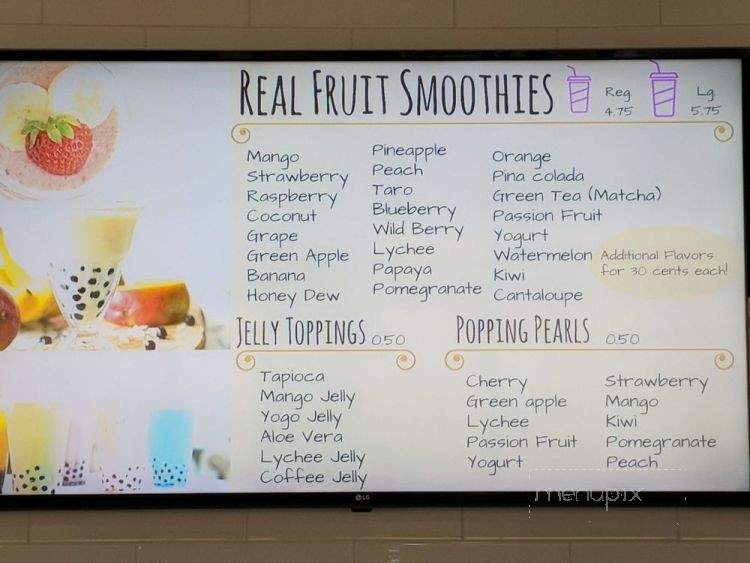 REAL FRUIT SMOOTHIES
Reg
4.75
Lg
5.75
Mango
Strawberry
Raspberry
Coconut
Grape
Green Apple
Banana
Honey Dew
Pineapple
Peach
Taro
Blueberry
Wild Berry
Lychee
Papaya
Pomegranate
Orange
Pina colada
Green Tea (Matcha)
Passion Fruit
Yogurt
Watermelon
Kiwi
Cantaloupe
Additional Flavors
for 30 cents each!
JELLY TOPPINGS 0.50
Tapioca
Mango Jelly
Yogo Jelly
Aloe Vera
Lychee Jelly
Coffee Jelly
POPPING PEARLS 0.50
Cherry
Green apple
Lychee
Passion Fruit
Yogurt
Strawberry
Mango
Kiwi
Pomegranate
Peach
LG
menupix